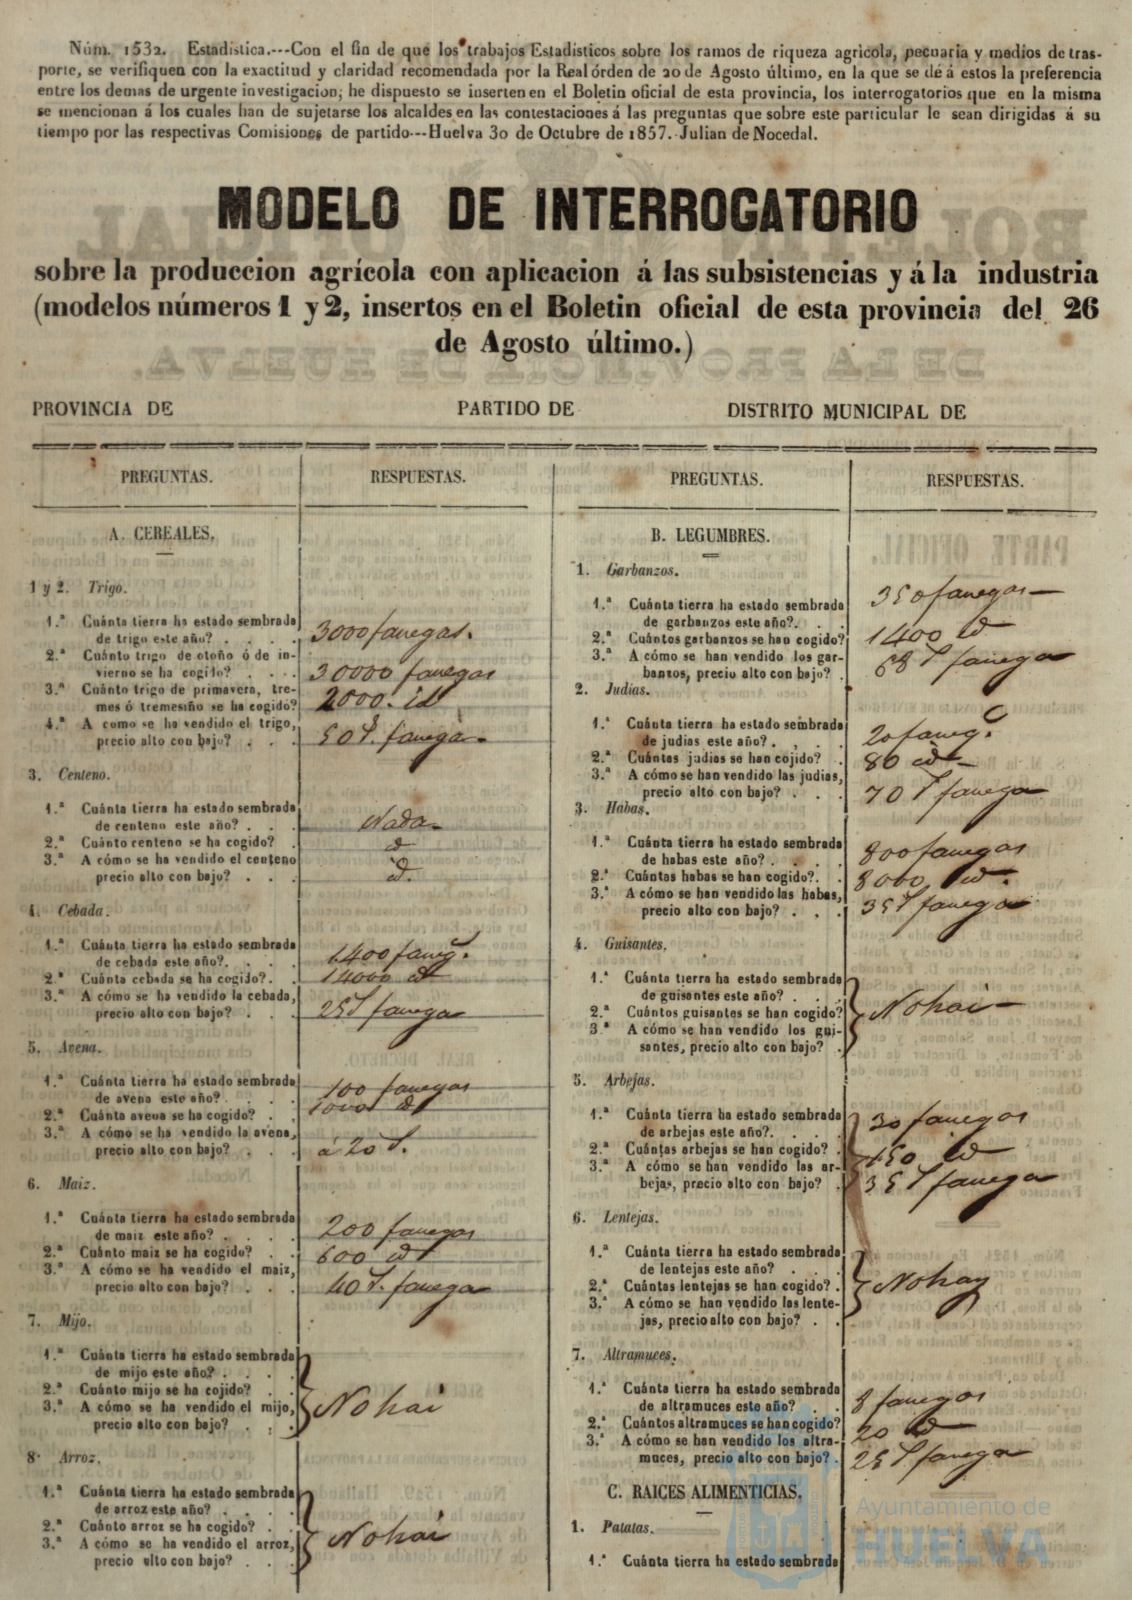 Núm. 1532. Estadística.---Con el fin de que los trabajos Estadísticos sobre los ramos de riqueza agrícola, pecuaria y medios de tras-
porte, se verifiquen con la exactitud y claridad recomendada por la Real órden de 20 de Agosto último, en la que se dé á estos la preferencia
entre los demas de urgente investigacion; he dispuesto se inserten en el Boletin oficial de esta provincia, los interrogatorios que en la misma
se mencionan á los cuales han de sujetarse los alcaldes en las contestaciones á las preguntas que sobre este particular le sean dirigidas á su
tiempo por las respectivas Comisiones de partido---Huelva 30 de Octubre de 1857. Julian de Nocedal.
MODELO DE INTERROGATORIO
sobre la produccion agrícola con aplicacion á las subsistencias y á la industria
(modelos números 1 y 2, insertos en el Boletin oficial de esta provincia del 26
de Agosto último.)
PROVINCIA DE PARTIDO DE DISTRITO MUNICIPAL DE
PREGUNTAS. RESPUESTAS.
A. CEREALES.
1 y 2. Trigo.
1.ª Cuánta tierra ha estado sembrada
de trigo este año? . . . . 3000 fanegas.
2.ª Cuánto trigo de otoño ó de in-
vierno se ha cogido? . . . 30000 fanegas
3.ª Cuánto trigo de primavera, tre-
mes ó tremesino se ha cogido? 2000. id
4.ª A como se ha vendido el trigo,
precio alto con bajo? . . . 50 fanega
3. Centeno.
1.ª Cuánta tierra ha estado sembrada
de centeno este año? . . . Nada
2.ª Cuánto centeno se ha cogido? . id
3.ª A cómo se ha vendido el centeno
precio alto con bajo? . . . id.
4. Cebada.
1.ª Cuánta tierra ha estado sembrada
de cebada este año? . . . 1400 faneg.
2.ª Cuánta cebada se ha cogido? . 14000 id
3.ª A cómo se ha vendido la cebada,
precio alto con bajo? . . . 25 fanega
5. Avena.
1.ª Cuánta tierra ha estado sembrada
de avena este año? . . . . 100 fanegas
2.ª Cuánta avena se ha cogido? . . 1000 id
3.ª A cómo se ha vendido la avena,
precio alto con bajo? . . . á 20
6. Maiz.
1.ª Cuánta tierra ha estado sembrada
de maiz este año? . . . . 200 fanegas
2.ª Cuánto maiz se ha cogido? . . 600 id
3.ª A cómo se ha vendido el maiz,
precio alto con bajo? . . . 40 fanega
7. Mijo.
1.ª Cuánta tierra ha estado sembrada
de mijo este año? . . . .
2.ª Cuánto mijo se ha cojido? . .
3.ª A cómo se ha vendido el mijo, No hai
precio alto con bajo? . . .
8. Arroz.
1.ª Cuánta tierra ha estado sembrada
de arroz este año? . . . .
2.ª Cuánto arroz se ha cogido? . . No hai
3.ª A cómo se ha vendido el arroz,
precio alto con bajo? . . .
PREGUNTAS. RESPUESTAS.
B. LEGUMBRES.
1. Garbanzos.
1.ª Cuánta tierra ha estado sembrada 350 fanegas
de garbanzos este año?. . .
2.ª Cuántos garbanzos se han cogido? 1400 id
3.ª A cómo se han vendido los gar-
banzos, precio alto con bajo? . 68 fanega
2. Judias.
1.ª Cuánta tierra ha estado sembrada
de judias este año? . . . . 20 faneg.
2.ª Cuántas judias se han cojido? . 80 id
3.ª A cómo se han vendido las judias,
precio alto con bajo? . . . 70 fanega
3. Habas.
1.ª Cuánta tierra ha estado sembrada
de habas este año? . . . . 800 fanegas
2.ª Cuántas habas se han cogido?. . 8000 id.
3.ª A cómo se han vendido las habas,
precio alto con bajo? . . . 35 fanega
4. Guisantes.
1.ª Cuánta tierra ha estado sembrada
de guisantes este año? . . .
2.ª Cuántos guisantes se han cogido? No hai
3.ª A cómo se han vendido los gui-
santes, precio alto con bajo? .
5. Arbejas.
1.ª Cuánta tierra ha estado sembrada 30 fanegas
de arbejas este año?. . . .
2.ª Cuántas arbejas se han cogido? . 150 id
3.ª A cómo se han vendido las ar-
bejas, precio alto con bajo? . 35 fanega
6. Lentejas.
1.ª Cuánta tierra ha estado sembrada
de lentejas este año? . . .
2.ª Cuántas lentejas se han cogido? . No hay
3.ª A cómo se han vendido las lente-
jas, precio alto con bajo? . .
7. Altramuces.
1.ª Cuánta tierra ha estado sembrada
de altramuces este año? . . 8 fanegas
2.ª Cuántos altramuces se han cogido? 20 id
3.ª A cómo se han vendido los altra-
muces, precio alto con bajo? . 25 fanega
C. RAICES ALIMENTICIAS.
1. Patatas.
1.ª Cuánta tierra ha estado sembrada
Ayuntamiento de
HUELVA